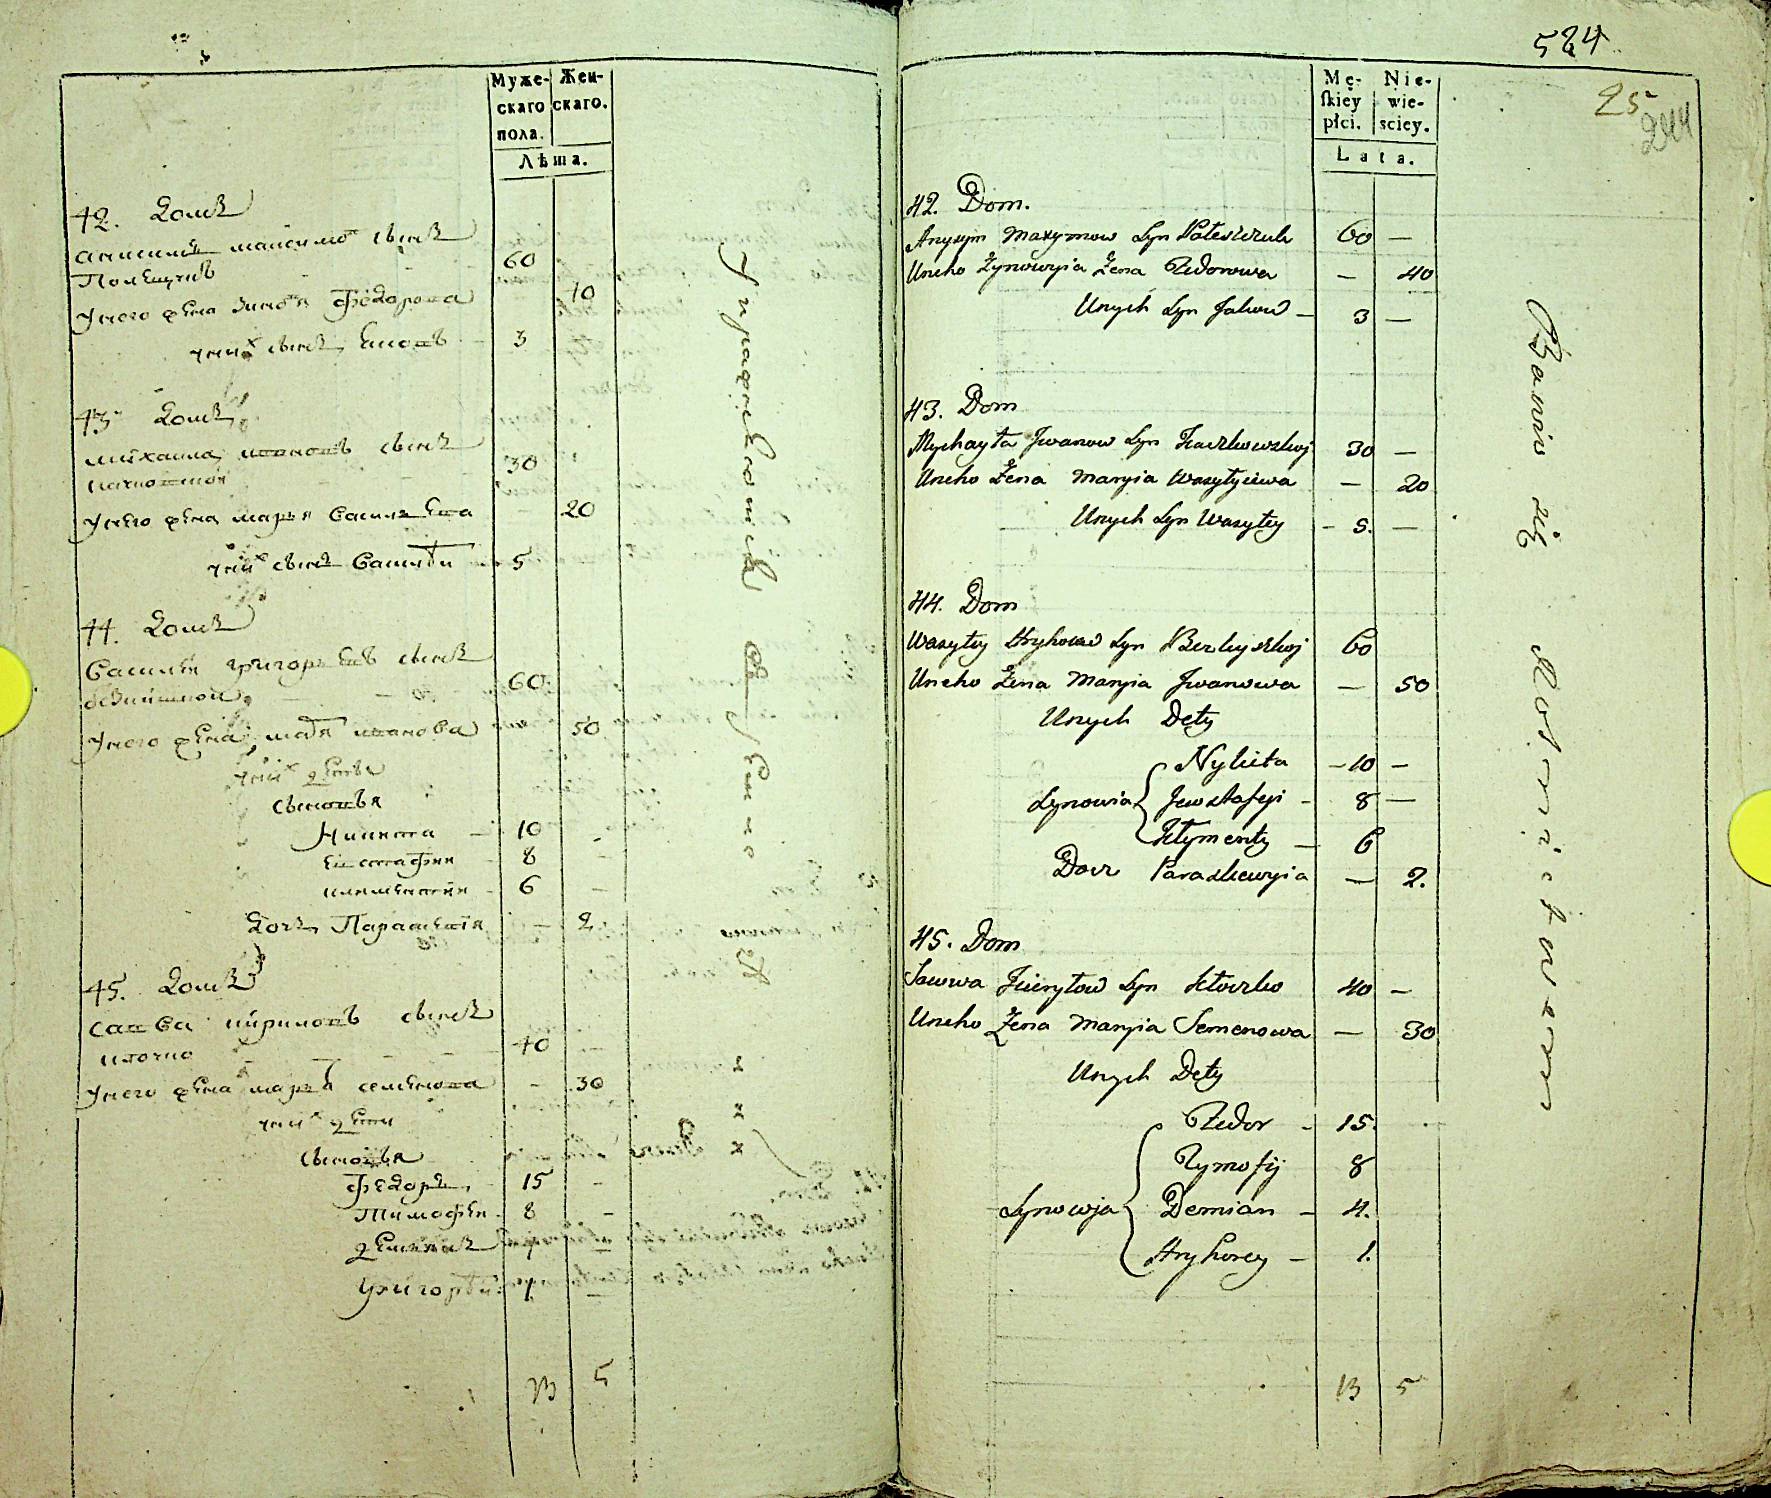 Муже-
скаго
пола.
Жен-
скаго.
Лѣта.
42. Домъ
Анисимъ Максимовъ сынъ
Полещукъ 60
Унего жена Зиновья Федорова 40
уних сынъ Яковъ 3
43 Домъ
Михайла Ивановъ сынъ
30
Унего жена Марья Василева 20
уних сынъ Василѣй 5
44. Домъ
Василей Григорьевъ сынъ
60
Унего жена Марья Иванова 50
уних дети
сыновья
Никита 10
Евстафии 8
Климентии 6
дочь Параскевия 2
45. Домъ
Савва Кириловъ сынъ
Клочко 40
Унего жена Марья Семенова 30
уних дети
сыновья
Федоръ 15
Тимофей 8
Демянъ 4
Григорѣй 1
13 5
584
25
244
Mę-
skiey
płci.
Nie-
wie-
sciey.
Lata.
42. Dom.
Anysym Maxymow Syn Poleszczuk 60 —
Uneho Zynowyia Żena Fedorowa — 40
Unych Syn Jakow — 3 —
43. Dom
Mychayła Jwanow Syn 30 —
Uneho Żena Maryia Wasylyiewa — 20
Unych Syn Wasyley — 5. —
44. Dom
Wasyley Hryhorew Syn 60
Uneho Żena Maryia Jwanowa — 50
Unych Dety
Synowia
Nykita — 10 —
Jewstafyi — 8 —
Kłymenty — 6
Docz Paraskewyia — 2.
45. Dom
Sawwa Kiryłow Syn Kłoczko 40 —
Uneho Żena Maryia Semenowa — 30
Unych Dety
Synowja
Fedor — 15.
Tymofij 8
Demian — 4.
Hryhorey — 1.
13 5